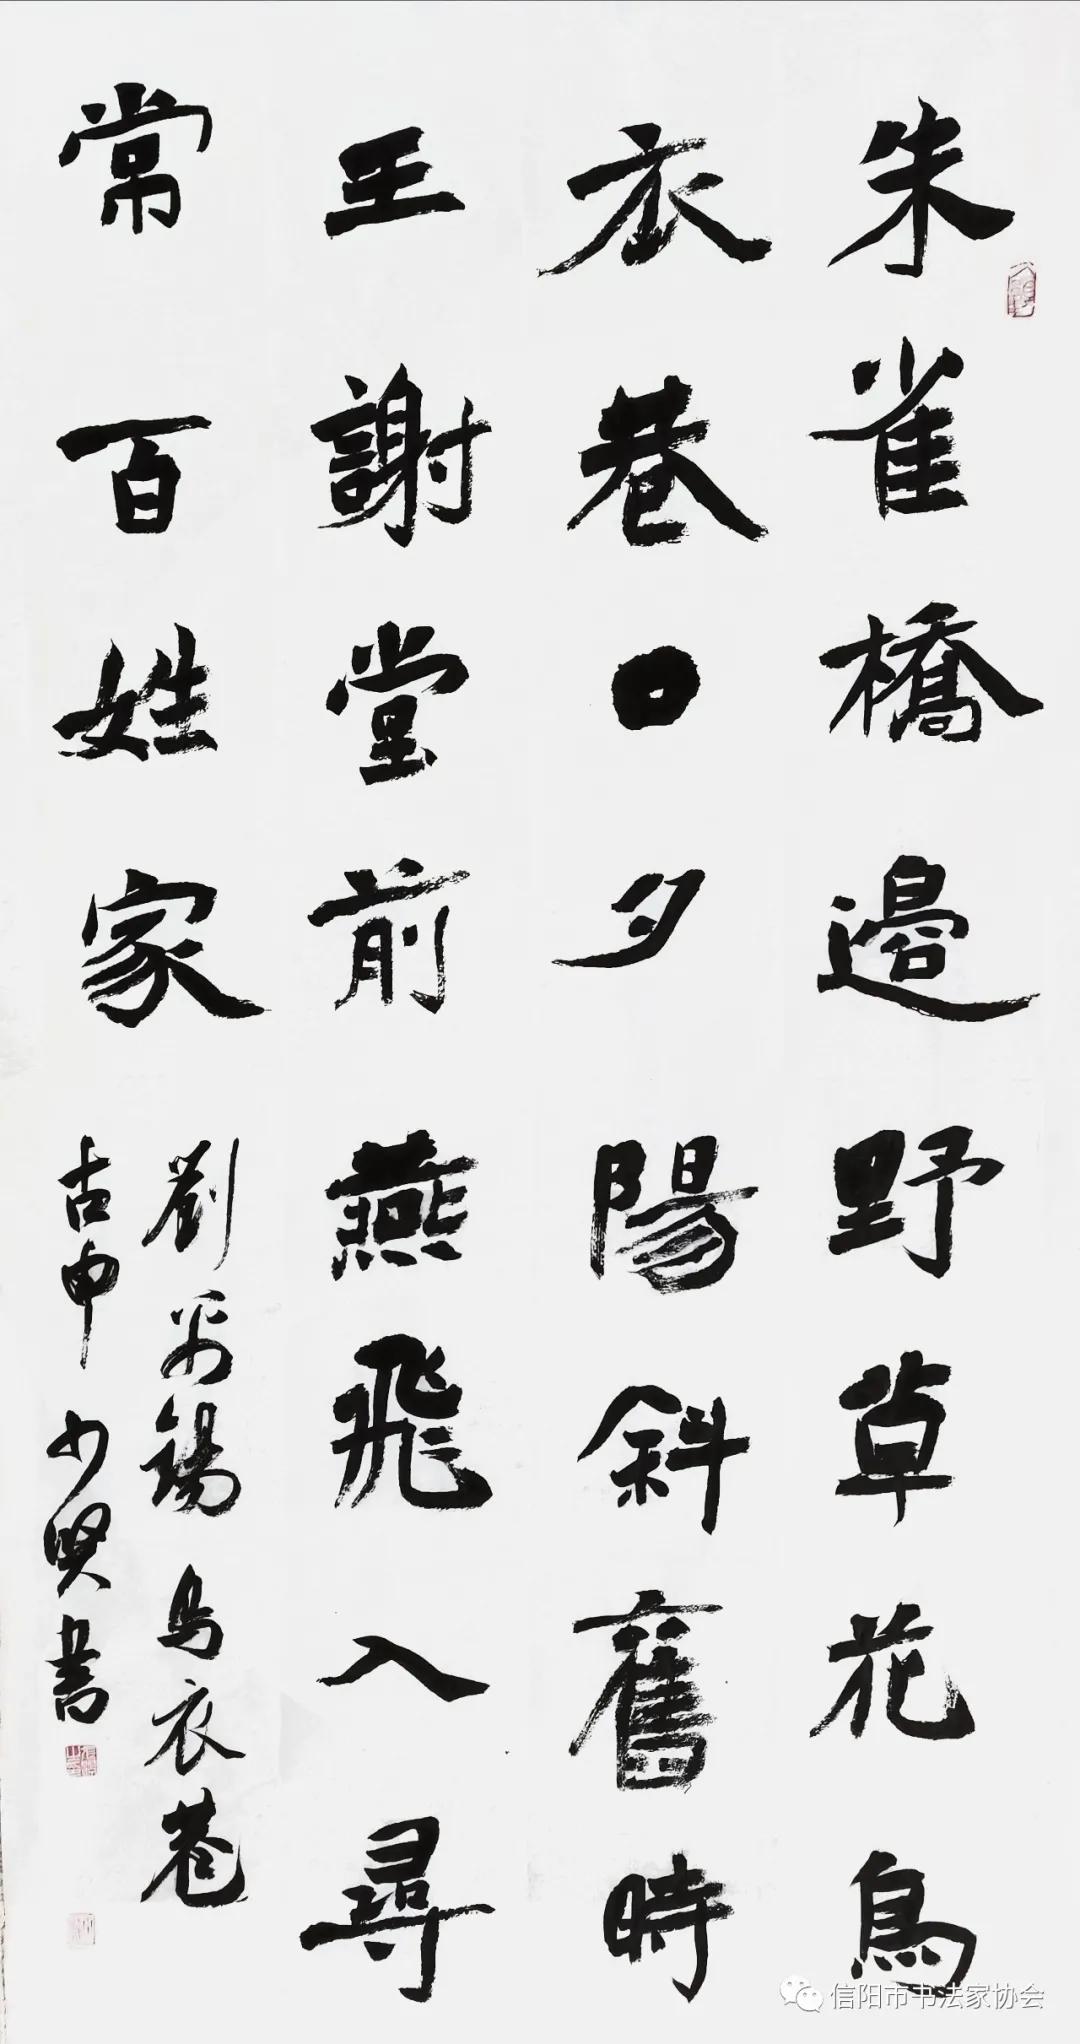 朱雀橋邊野草花烏
衣巷口夕陽斜舊時
王謝堂前燕飛入尋
常百姓家
劉禹錫烏衣巷
古申少賢書
信阳市书法家协会